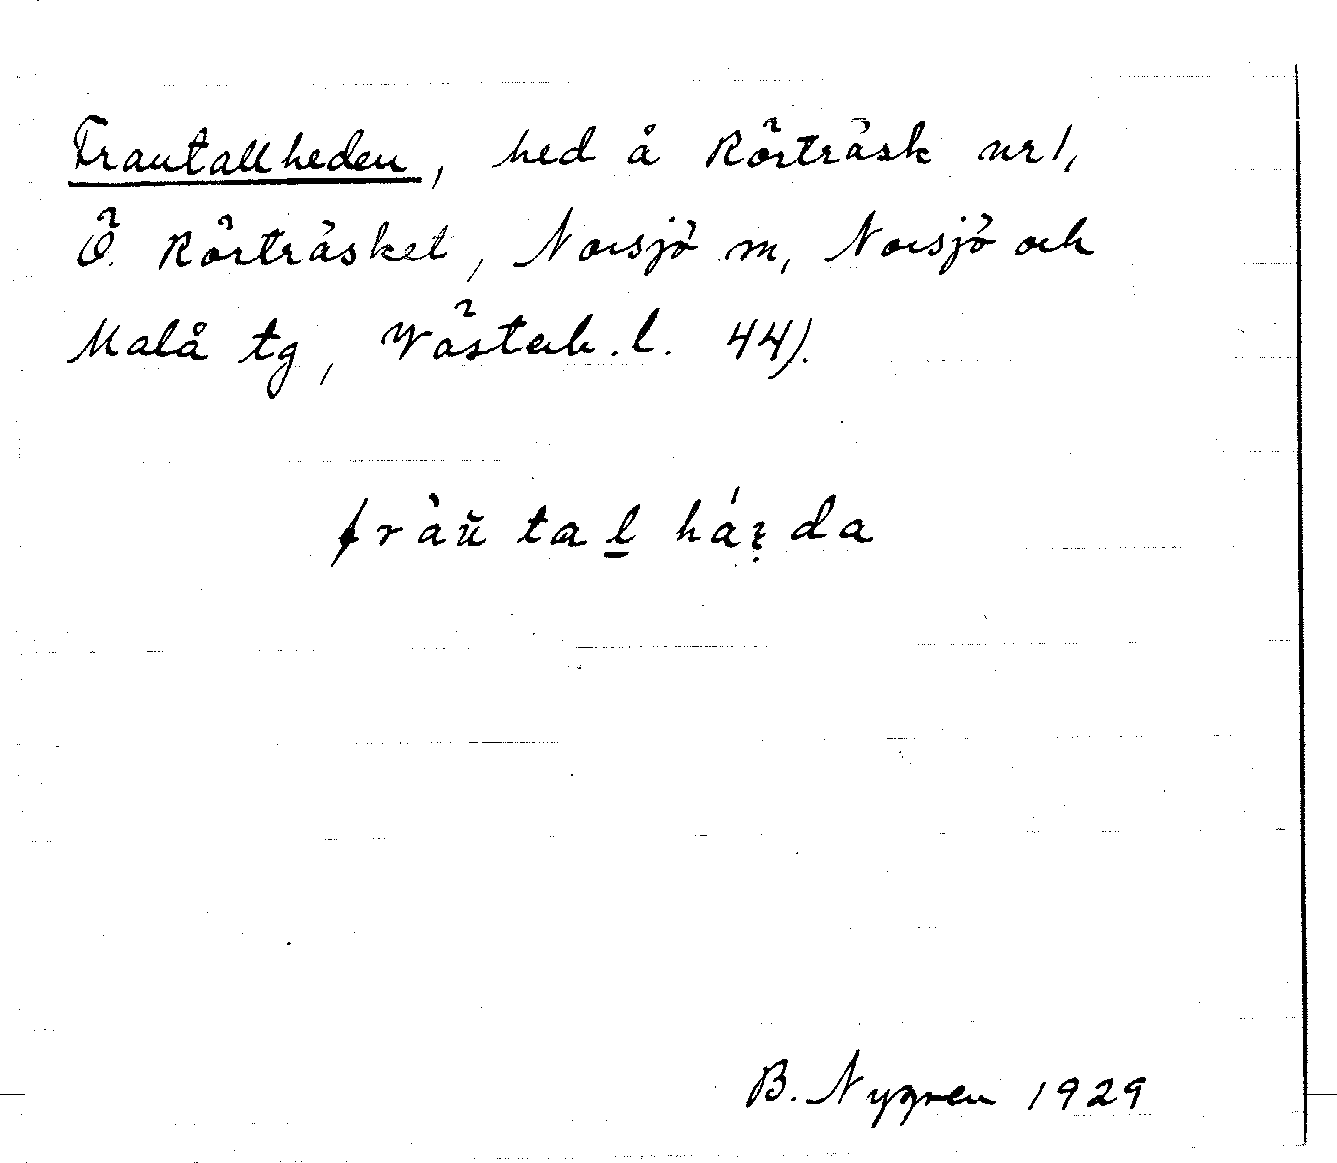 Frautallheden, hed å Rörträsk nr 1,
Ö. Rörträsket, Norsjö m, Norsjö och
Malå tg, Västerb. l. 44).
fràŭ tal̲ há
B. Nygren 1929